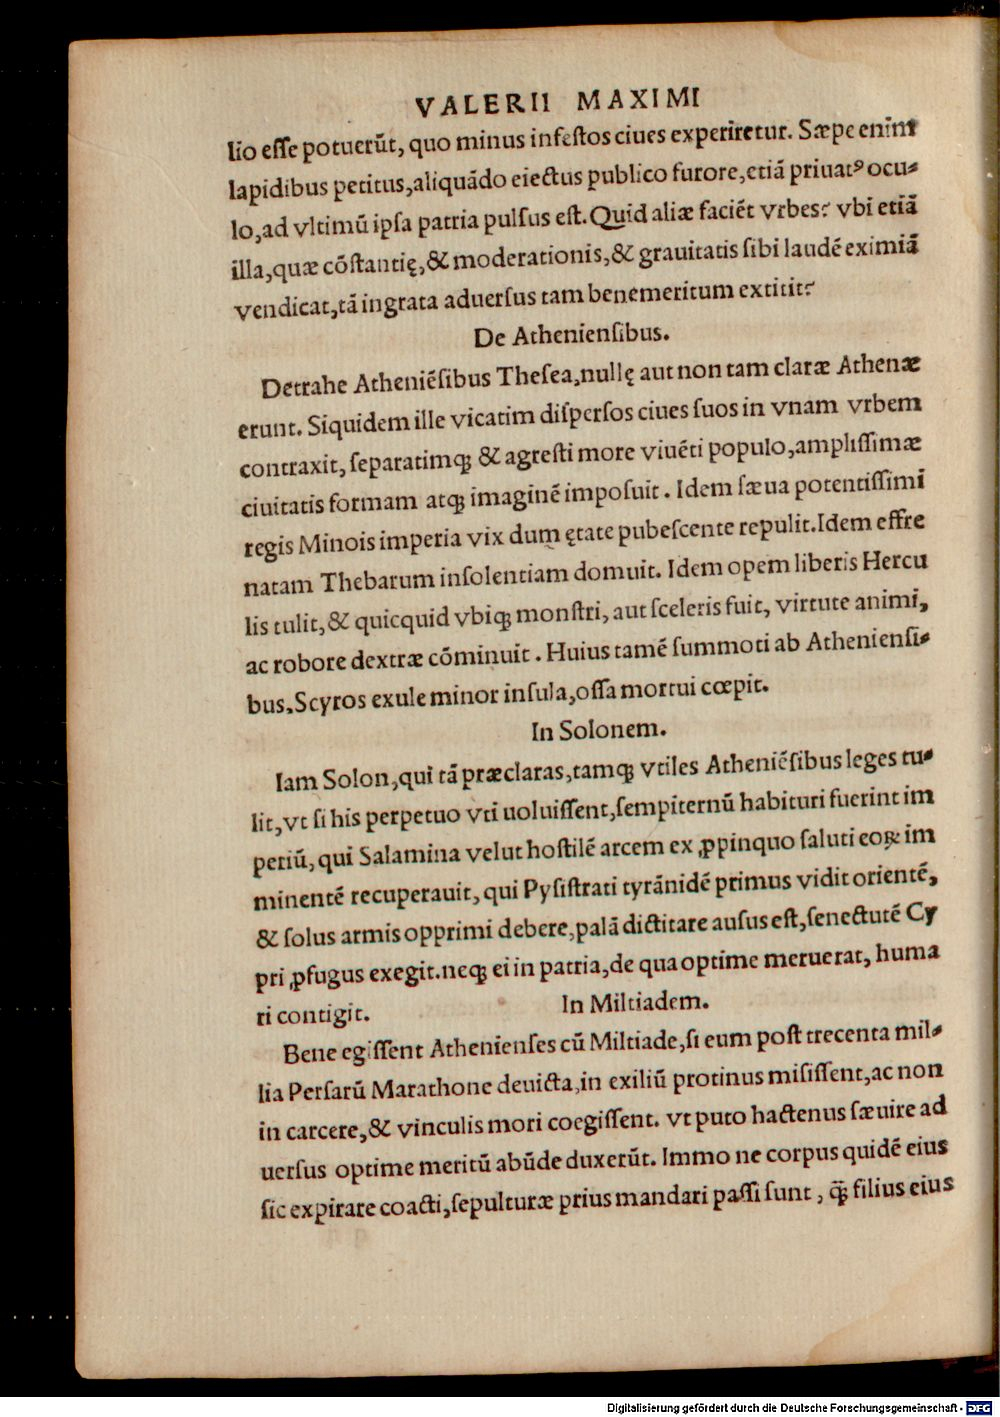 VALERII MAXIMI
lio esse potuerũt, quo minus infestos ciues experiretur. Sæpe enim
lapidibus petitus, aliquãdo eiectus publico furore, etiã priuatꝰ ocu-
lo, ad vltimũ ipsa patria pulsus est. Quid aliæ faciẽt vrbes? vbi etiã
illa, quæ cõstantię, & moderationis, & grauitatis sibi laudẽ eximiã
vendicat, tã ingrata aduersus tam benemeritum extitit?
De Atheniensibus.
Detrahe Atheniẽsibus Thesea, nullę aut non tam claræ Athenæ
erunt. Siquidem ille vicatim dispersos ciues suos in vnam vrbem
contraxit, separatimq; & agresti more viuẽti populo, amplissimæ
ciuitatis formam atq; imaginẽ imposuit. Idem sæua potentissimi
regis Minois imperia vix dum ętate pubescente repulit. Idem effre
natam Thebarum insolentiam domuit. Idem opem liberis Hercu
lis tulit, & quicquid vbiq; monstri, aut sceleris fuit, virtute animi,
ac robore dextræ cõminuit. Huius tamẽ summoti ab Atheniensi-
bus. Scyros exule minor insula, ossa mortui cœpit.
In Solonem.
Iam Solon, qui tã præclaras, tamq; vtiles Atheniẽsibus leges tu-
lit, vt si his perpetuo vti uoluissent, sempiternũ habituri fuerint im
periũ, qui Salamina velut hostilẽ arcem ex ꝓpinquo saluti eoꝝ im
minentẽ recuperauit, qui Pysistrati tyrãnidẽ primus vidit orientẽ,
& solus armis opprimi debere, palã dictitare ausus est, senectutẽ Cy
pri ꝓfugus exegit. neq; ei in patria, de qua optime meruerat, huma
ri contigit.
In Miltiadem.
Bene egissent Athenienses cũ Miltiade, si eum post trecenta mil-
lia Persarũ Marathone deuicta, in exiliũ protinus misissent, ac non
in carcere, & vinculis mori coegissent. vt puto hactenus sæuire ad
uersus optime meritũ abũde duxerũt. Immo ne corpus quidẽ eius
sic expirare coacti, sepulturæ prius mandari passi sunt, q̃ filius eius
Digitalisierung gefördert durch die Deutsche Forschungsgemeinschaft - DFG